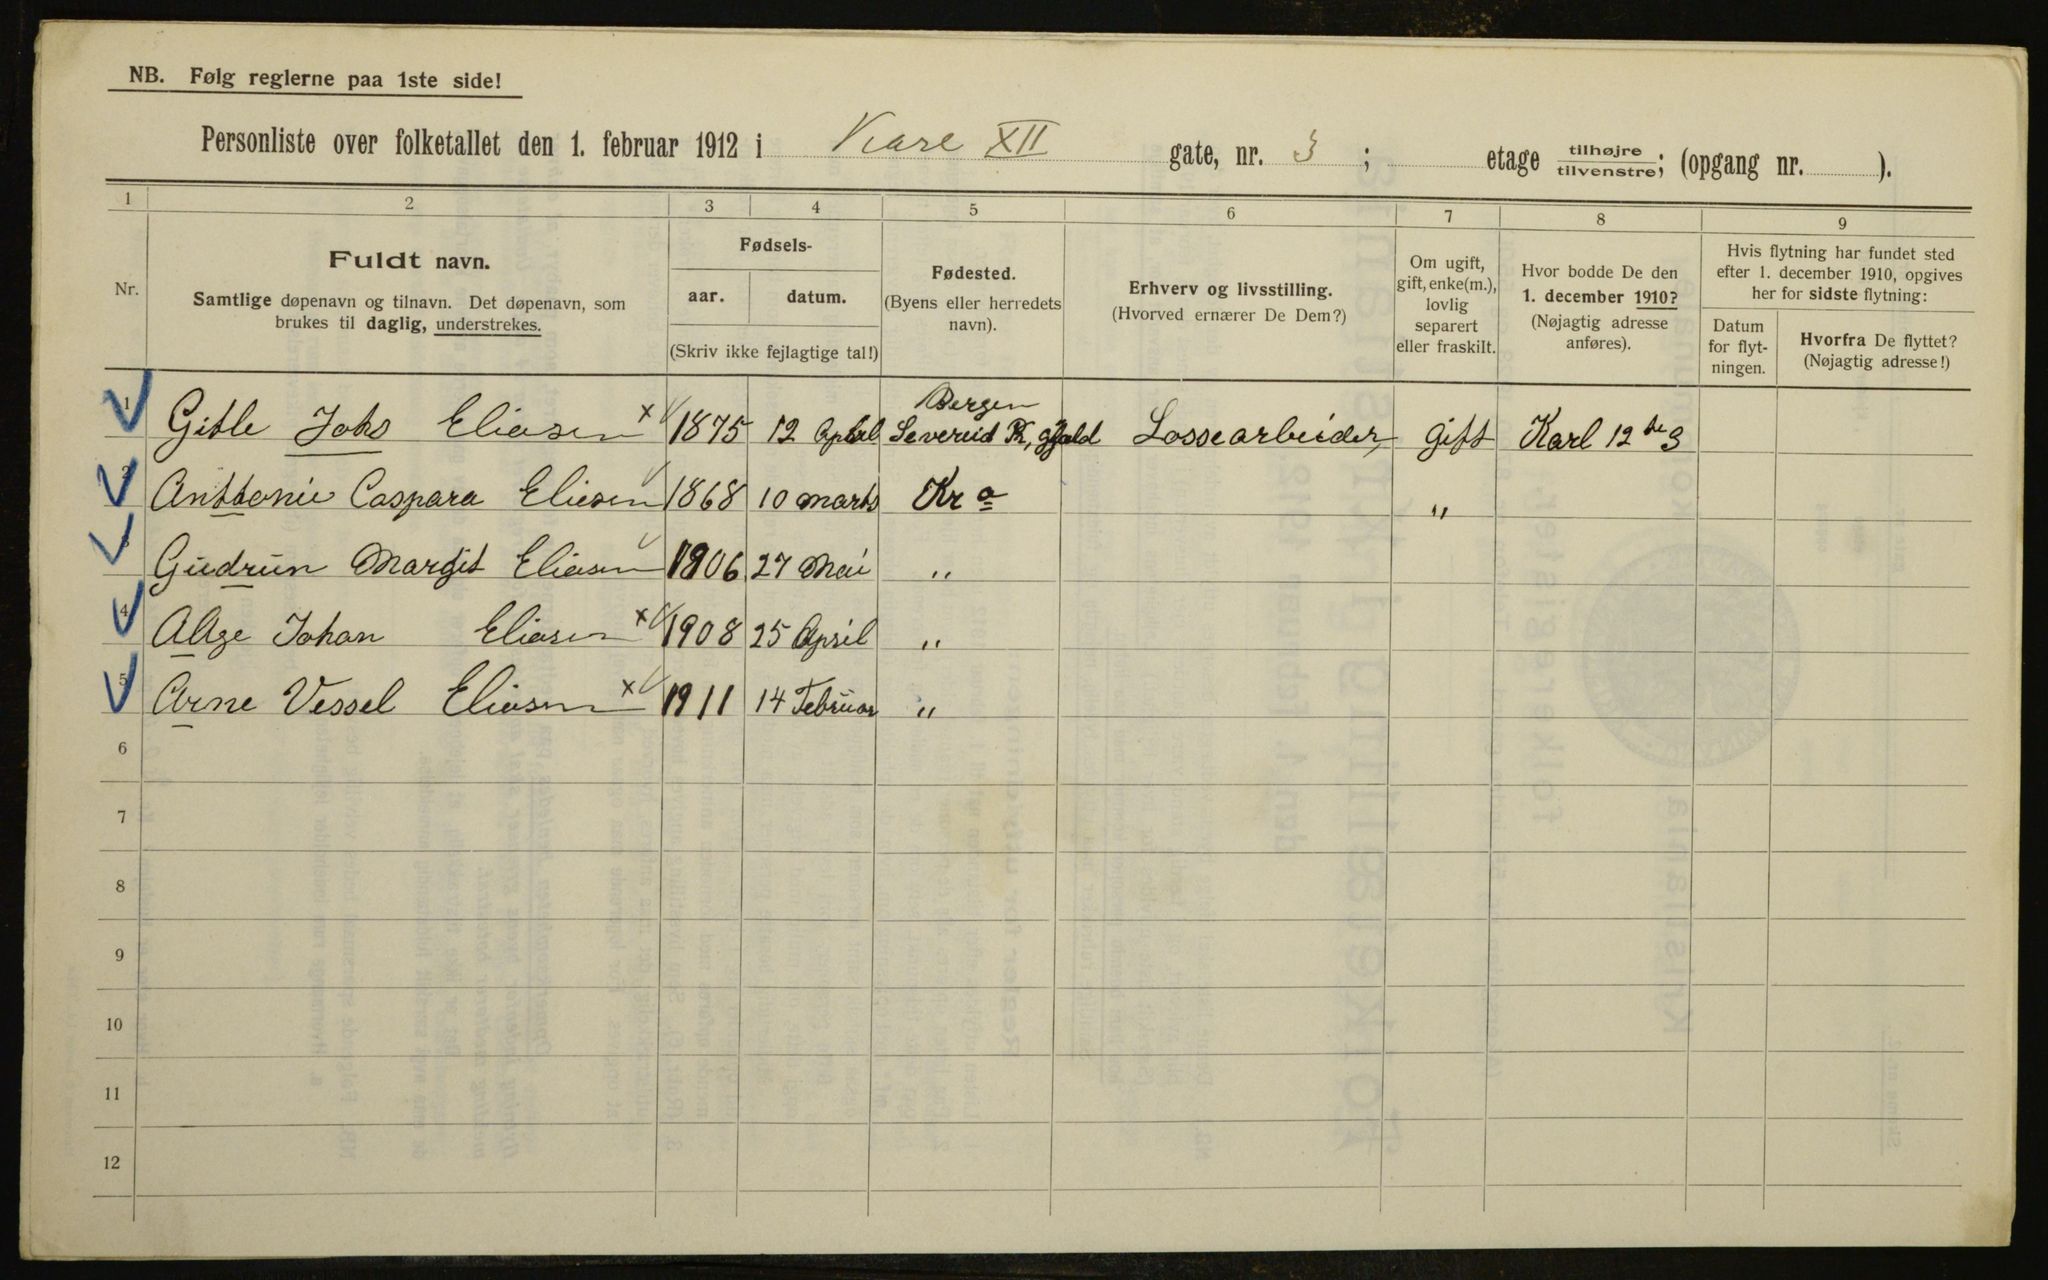 NB. Følg reglerne paa 1ste side!
Personliste over folketallet den 1. februar 1912 i Karl XII gate, nr. 3 ; etage tilhøjre/tilvenstre; (opgang nr. ).
1 2 3 4 5 6 7 8 9
Nr.
Fuldt navn.
Samtlige døpenavn og tilnavn. Det døpenavn, som
brukes til daglig, understrekes.
Fødsels-
aar. datum.
(Skriv ikke fejlagtige tal!)
Fødested.
(Byens eller herredets
navn).
Erhverv og livsstilling.
(Hvorved ernærer De Dem?)
Om ugift,
gift, enke(m.),
lovlig
separert
eller fraskilt.
Hvor bodde De den
1. december 1910?
(Nøjagtig adresse
anføres).
Hvis flytning har fundet sted
efter 1. december 1910, opgives
her for sidste flytning:
Datum
for flyt-
ningen.
Hvorfra De flyttet?
(Nøjagtig adresse!)
Bergen
1 Gitle Johs Eliasen x 1875 12 April Severeid Lossearbeider gift Karl 12 te 3
2 Anttonie Caspara Eliesen 1868 10 marts Kr a "
3 Gudrun Margit Eliasen 1906 27 Mai "
4 Johan Eliasen x 1908 25 April "
5 Arne Vessel Eliasen x 1911 14 Februar "
6
7
8
9
10
11
12